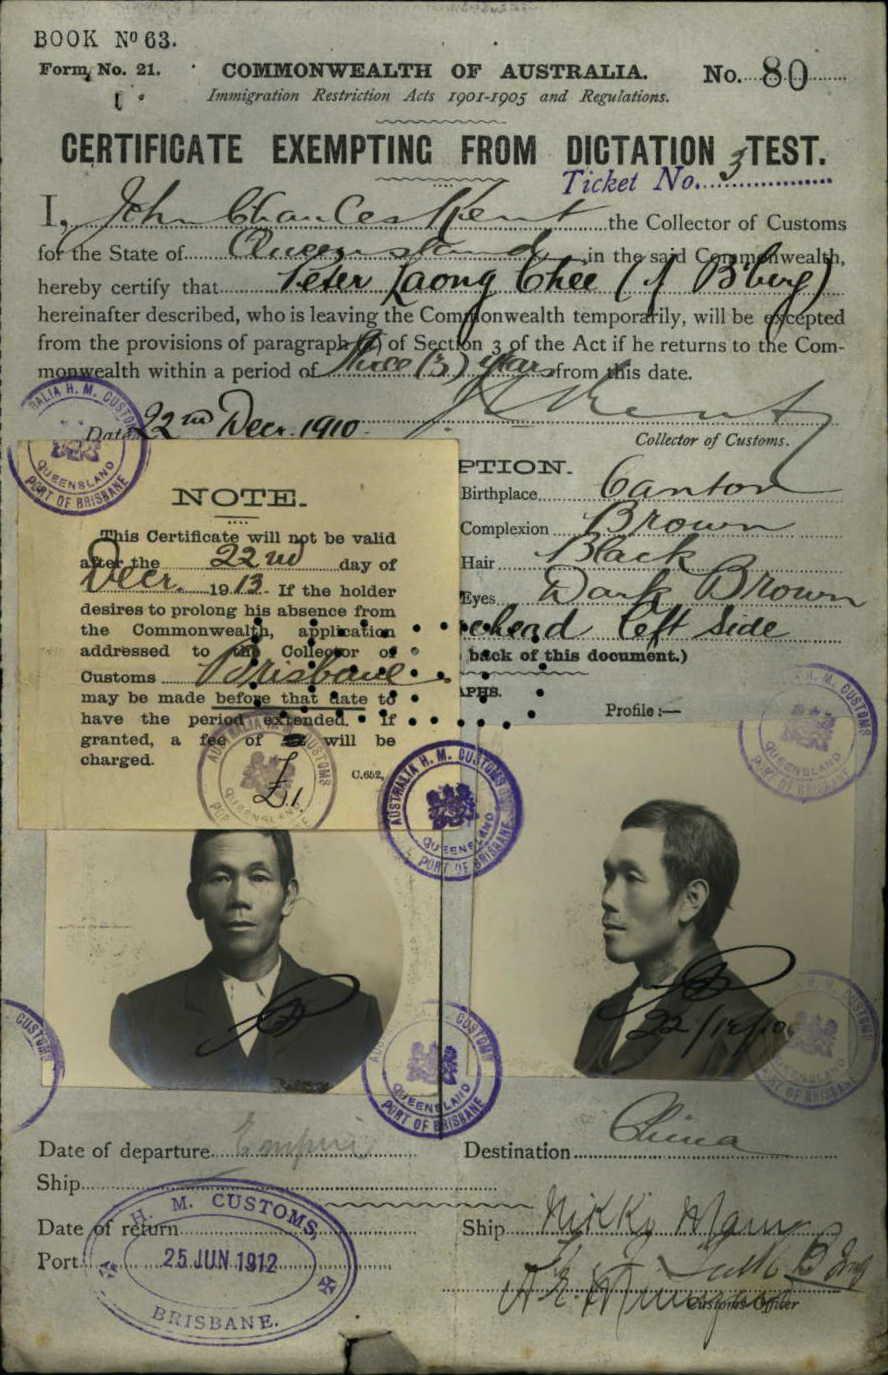 BOOK No 63.
Form No. 21. COMMONWEALTH OF AUSTRALIA. No. 80
Immigration Restriction Acts 1901-1905 and Regulations.
CERTIFICATE EXEMPTING FROM DICTATION TEST.
Ticket No. 3
I, John Chances Kent the Collector of Customs
for the State of Queensland in the said Commonwealth,
hereby certify that Peter Laong Chee (of B'berg)
hereinafter described, who is leaving the Commonwealth temporarily, will be excepted
from the provisions of paragraph of Section 3 of the Act if he returns to the Com-
monwealth within a period of three (3) years from this date.
Date 22nd Decr. 1910. J C Kent
Collector of Customs.
PTION.
Birthplace Canton
Complexion Brown
Hair Black
Eyes Dark Brown
ehead left side
back of this document.)
APHS.
Profile :—
NOTE.
This Certificate will not be valid
after the 22nd day of
Decr. 1913. If the holder
desires to prolong his absence from
the Commonwealth, application
addressed to the Collector of
Customs Brisbane
may be made before that date to
have the period extended. If
granted, a fee of will be
charged.
£1.
C.652.
AUSTRALIA H. M. CUSTOMS
QUEENSLAND
PORT OF BRISBANE
22/12/10
Date of departure Empire Destination China
Ship
Date of return Ship Nikko Maru
Port
H. M. CUSTOMS,
25 JUN 1912
BRISBANE.
Customs Officer